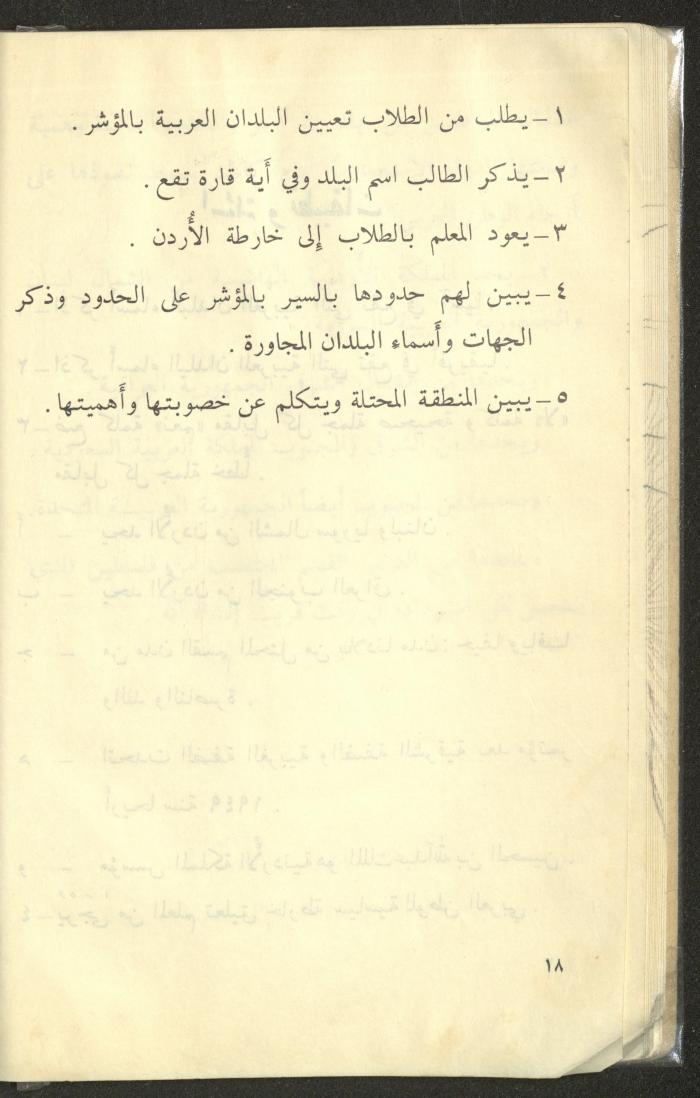 ١ – يطلب من الطلاب تعيين البلدان العربية بالمؤشر .
٢ – يذكر الطالب اسم البلد وفي أَية قارة تقع .
٣ – يعود المعلم بالطلاب إِلى خارطة الأُردن .
٤ – يبين لهم حدودها بالسير بالمؤشر على الحدود وذكر
الجهات وأَسماء البلدان المجاورة .
٥ – يبين المنطقة المحتلة ويتكلم عن خصوبتها وأَهميتها .
١٨